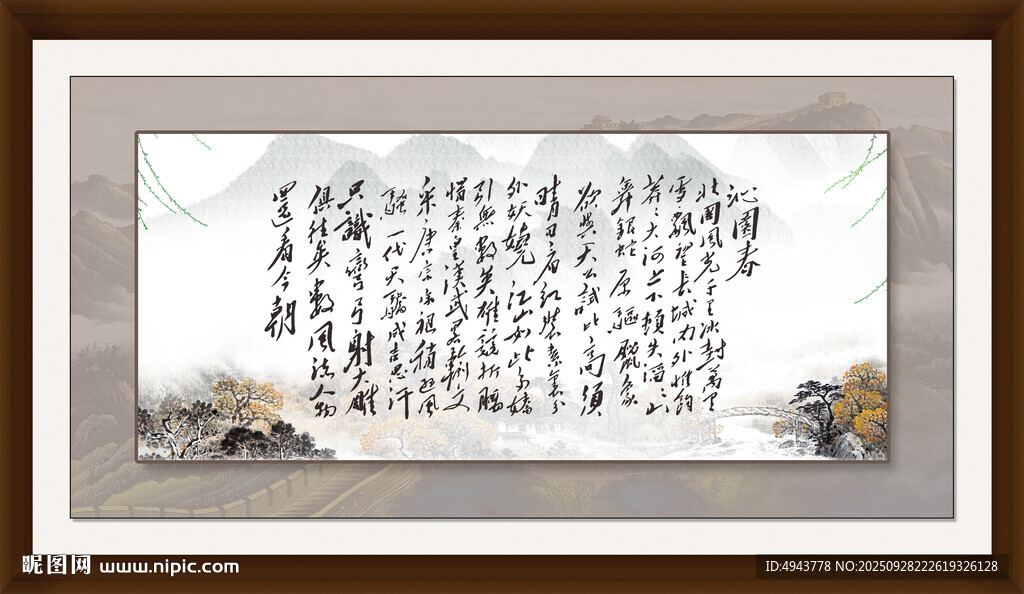 沁園春
北國風光千里冰封萬里
雪飄望長城内外惟餘
莽莽大河上下頓失滔滔山
舞銀蛇原驅臘象
欲與天公試比高須
晴日看紅裝素裹分
外妖嬈江山如此多嬌
引無數英雄競折腰
惜秦皇漢武略輸文
采唐宗宋祖稍遜風
騷一代天驕成吉思汗
只識彎弓射大雕
俱往矣數風流人物
還看今朝
昵图网 www.nipic.com
ID:4943778 NO:20250928222619326128